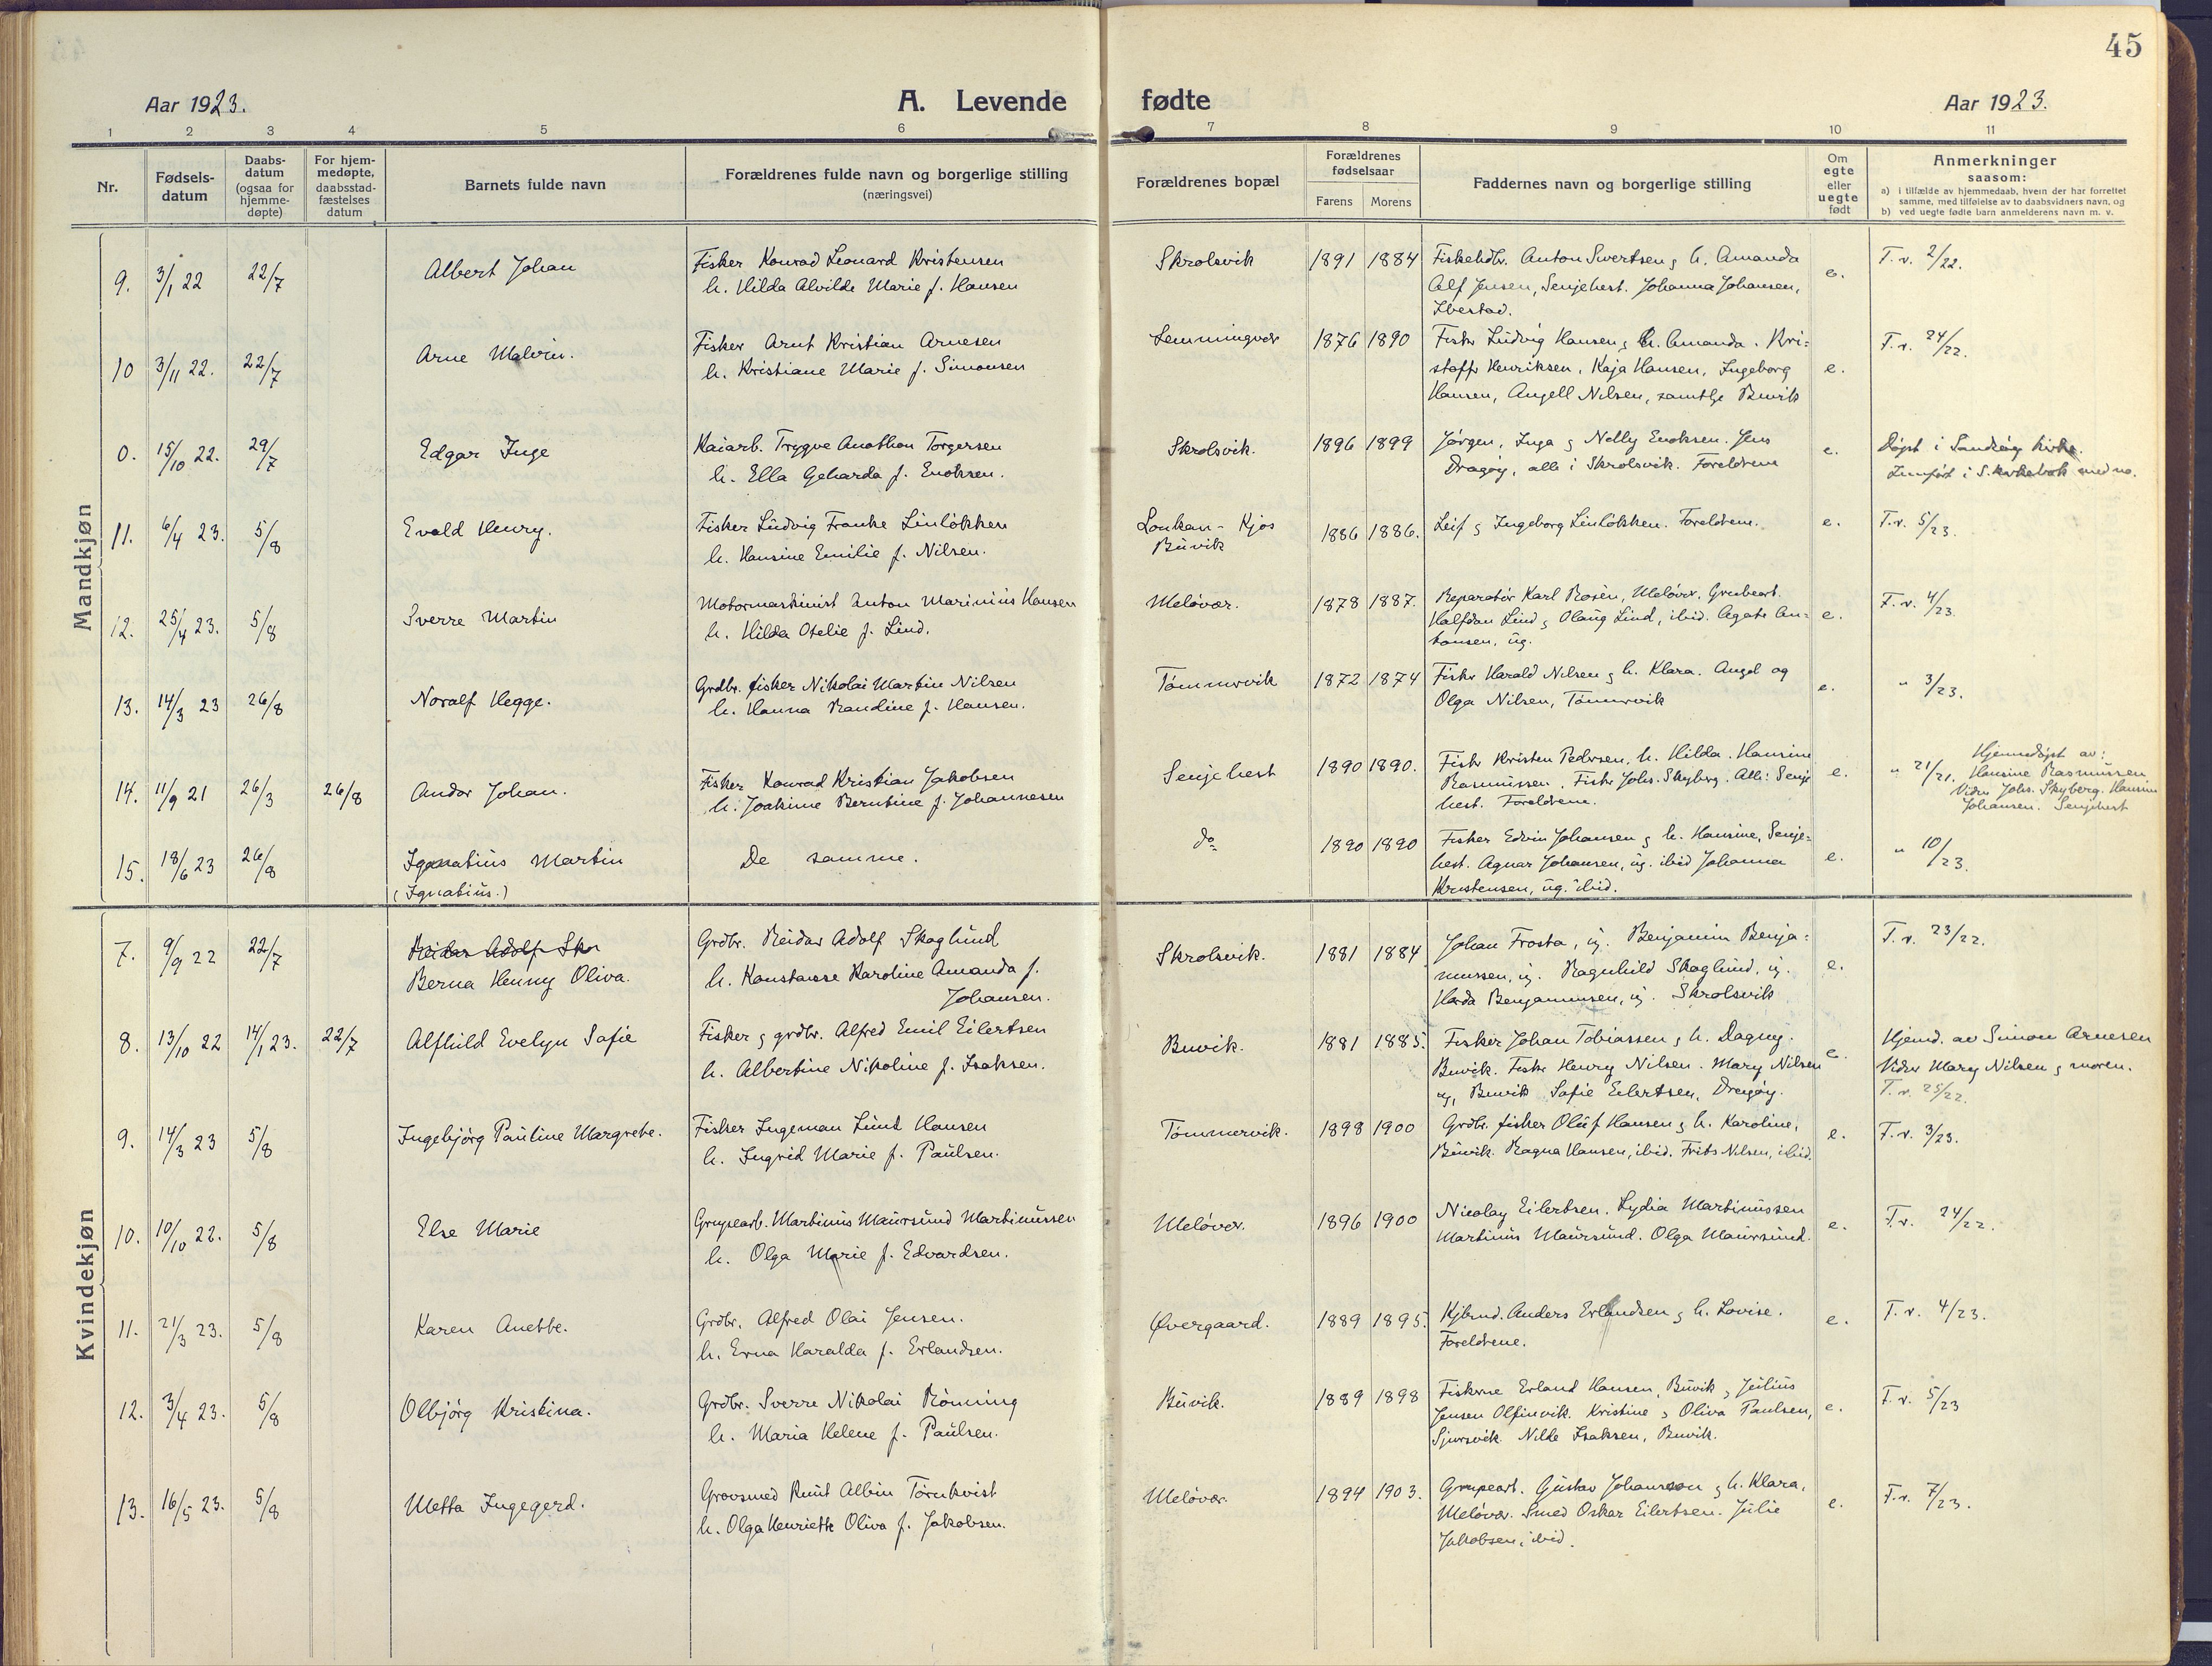 45
Aar 1923.
A. Levende fødte
Aar 1923.
1 2 3 4 5 6 7 8 9 10 11
Nr.
Fødsels-
datum
Daabs-
datum
(ogsaa for
hjemme-
døpte)
For hjem-
medøpte,
daabsstad-
fæstelses
datum
Barnets fulde navn
Forældrenes fulde navn og borgerlige stilling
(næringsvei)
Forældrenes bopæl
Forældrenes
fødselsaar
Farens Morens
Faddernes navn og borgerlige stilling
Om
egte
eller
uegte
født
Anmerkninger
saasom:
a) i tilfælde av hjemmedaab, hvem der har forrettet
samme, med tilføielse av to daabsvidners navn, og
b) ved uegte fødte barn anmelderens navn m. v.
Mandkjøn
9. 3/1 22 22/7 Albert Johan
Fisker Konrad Leonard Kristensen
h. Hilda Alvilde Marie f. Hansen
Skrolsvik 1891 1884
Fiskehdlr. Anton Sivertsen & h. Amanda
Alf Jensen, Senjehest. Johanna Johansen,
Ibestad.
e. T.v. 2/22.
10 3/11 22. 22/7 Arne Malvin.
Fisker Arnt Kristian Arnesen
h. Kristiane Marie f. Simonsen
Lemmingvær 1876 1890
Fisker Ludvig Hansen & h. Amanda. Kri=
stoffr Henriksen, Kaja Hansen, Ingeborg
Hansen, Angell Nilsen, samtlge Buvik
e. T.v. 24/22.
0. 15/10 22. 29/7 Edgar Inge
Kaiarb. Trygve Anathon Torgersen
h. Ella Geharda f. Enoksen.
Skrolsvik. 1896 1899
Jørgen, Inga & Nelly Enoksen. Jens
Dragøy, alle i Skrolsvik. Foreldrene
e. Døpt i Sandtorg kirke.
Innført i S. kirkebok med no.
11. 6/4 23. 5/8 Evald Henry.
Fisker Ludvig Franke Linløkken
h. Hansine Emilie f. Nilsen.
Lonkan- Kjos
Buvik
1886 1886.
Leif & Ingeborg Linløkken. Foreldrene.
e. T.v. 5/23.
12. 25/4 23. 5/8 Sverre Martin
Motormaskinist Anton Marinius Hansen
h. Hilda Otelie f. Lind.
Meløvær. 1878 1887.
Reparatør Karl Rosén, Meløvær. Grubearb.
Halfdan Lind & Olaug Lind, ibid. Agate An=
tonsen, ug.
e. T.v. 4/23.
13. 14/3 23 26/8 Noralf Hegge.
Grdbr. fisker Nikolai Martin Nilsen
h. Hanna Randine f. Hansen.
Tømmervik 1872 1874
Fisker Harald Nilsen & h. Klara. Angel og
Olga Nilsen, Tømmervik
e. " 3/23.
14. 11/9 21 26/3 26/8 Andor Johan.
Fisker Konrad Kristian Jakobsen
h. Joakime Berntine f. Johannesen
Senjehest 1890 1890.
Fisker Kristen Pedersen, h. Hilda. Hansine
Rasmussen. Fisker Johs. Skyberg. Alle: Senje
hest. Foreldrene.
e. " 21/21.
Hjemmedøpt av:
Hansine Rasmussen
Vidner Johs. Skyberg. Hansine
Johansen. Senjehest
15. 18/6 23 26/8 Iganatius Martin
(Ignatius.)
De samme.
do 1890 1890
Fisker Edvin Johansen & h. Hansine, Senje=
hest. Agnar Johansen, ug. ibid Johanna
Kristensen, ug. ibid.
e. " 10/23.
Kvindekjøn
7. 9/9 22 22/7 Reidar Adolf Ska
Berna Henny Oliva.
Grdbr. Reidar Adolf Skoglund
h. Konstanse Karoline Amanda f.
Johansen.
Skrolsvik. 1881 1884
Johan Frosta, ug. Benjamin Benja=
minsen, ug. Ragnhild Skoglund, ug.
Harda Benjaminsen, ug. Skrolsvik
e. T.v. 23/22.
8. 13/10 22 14/1 23. 22/7 Alfhild Evelyn Sofie
Fisker & grdbr. Alfred Emil Eilertsen
h. Albertine Nikoline f. Isaksen.
Buvik. 1881 1885.
Fisker Johan Tobiassen & h. Dagny.
Buvik. Fisker Henry Nilsen. Mary Nilsen
ug, Buvik Sofie Eilertsen, Dragøy.
e. Hjemd. av Simon Arnesen
Vidner Mary Nilsen & moren.
T.v. 25/22.
9. 14/3 23 5/8 Ingebjørg Pauline Margrete.
Fisker Ingeman Lund Hansen
h. Ingrid Marie f. Paulsen.
Tømmervik. 1898 1900
Grdbr. fisker Oluf Hansen & h. Karoline,
Buvik. Ragna Hansen, ibid. Frits Nilsen, ibid.
e. T.v. 3/23.
10. 10/10 22. 5/8 Else Marie
Grupearb. Martinus Maursund Martinussen
h. Olga Marie f. Edvardsen.
Meløvær. 1896 1900
Nicolay Eilertsen. Lydia Martinussen
Martinus Maursund. Olga Maursund.
e. T.v. 24/22.
11. 21/3 23. 5/8 Karen Anette.
Grdbr. Alfred Olai Jensen.
h. Erna Haralda f. Erlandsen.
Øvergaard. 1889 1895.
Kjbmd. Anders Erlandsen & h. Lovise.
Foreldrene.
e. T.v. 4/23.
12. 3/4 23. 5/8 Olbjørg Kristina.
Grdbr. Sverre Nikolai Rønning
h. Maria Helene f. Paulsen.
Buvik. 1889 1898
Fiskerne Erland Hansen, Buvik & Julius
Jensen Olfinvik. Kristine & Oliva Paulsen,
Sjursvik. Nilde Isaksen, Buvik.
e. T.v. 5/23
13. 16/5 23. 5/8 Metta Ingegerd.
Grovsmed Knut Albin Törnkvist
h. Olga Henriette Oliva f. Jakobsen.
Meløvær. 1894 1903.
Grupearb. Gustav Johansson & h. Klara,
Meløvær. Smed Oskar Eilertsen. Julie
Jakobsen, ibid.
e. T.v. 7/23.